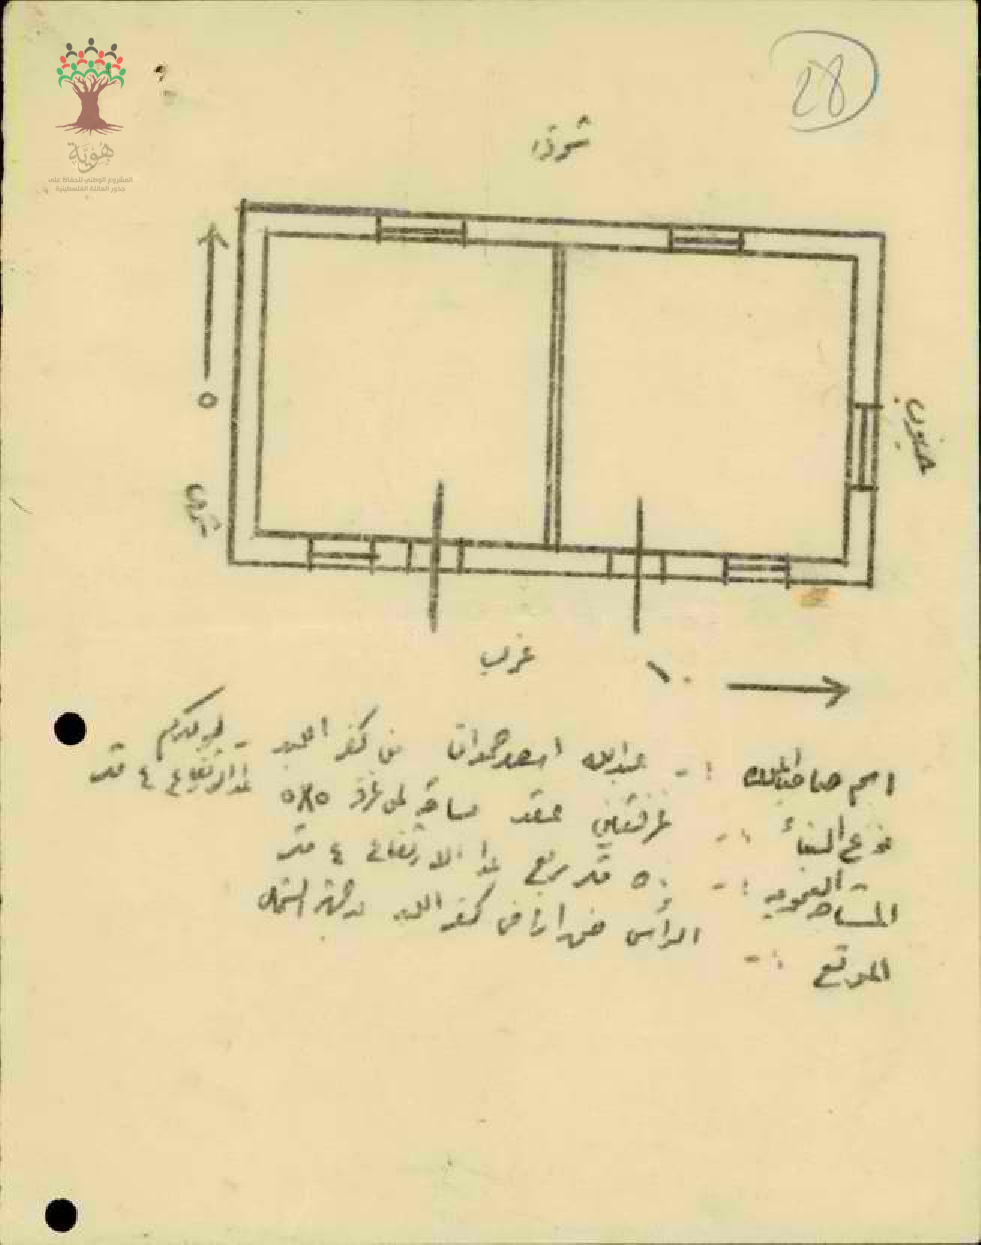 هوية
المشروع الوطني للحفاظ على
جذور العائلة الفلسطينية
28
شرق
جنوب
٥
غرب
١٠
اسم صاحب الملك :- عبدالله اسعد حمدان من كفر اللبد - طولكرم
نوع البناء :- غرفتين عقد مساحة كل غرفة ٥x٥ الارتفاع ٤ متر
المساحة العمومية :- ٥٠ متر مربع الارتفاع ٤ متر
الموقع :- الرأس من اراضي كفر اللبد